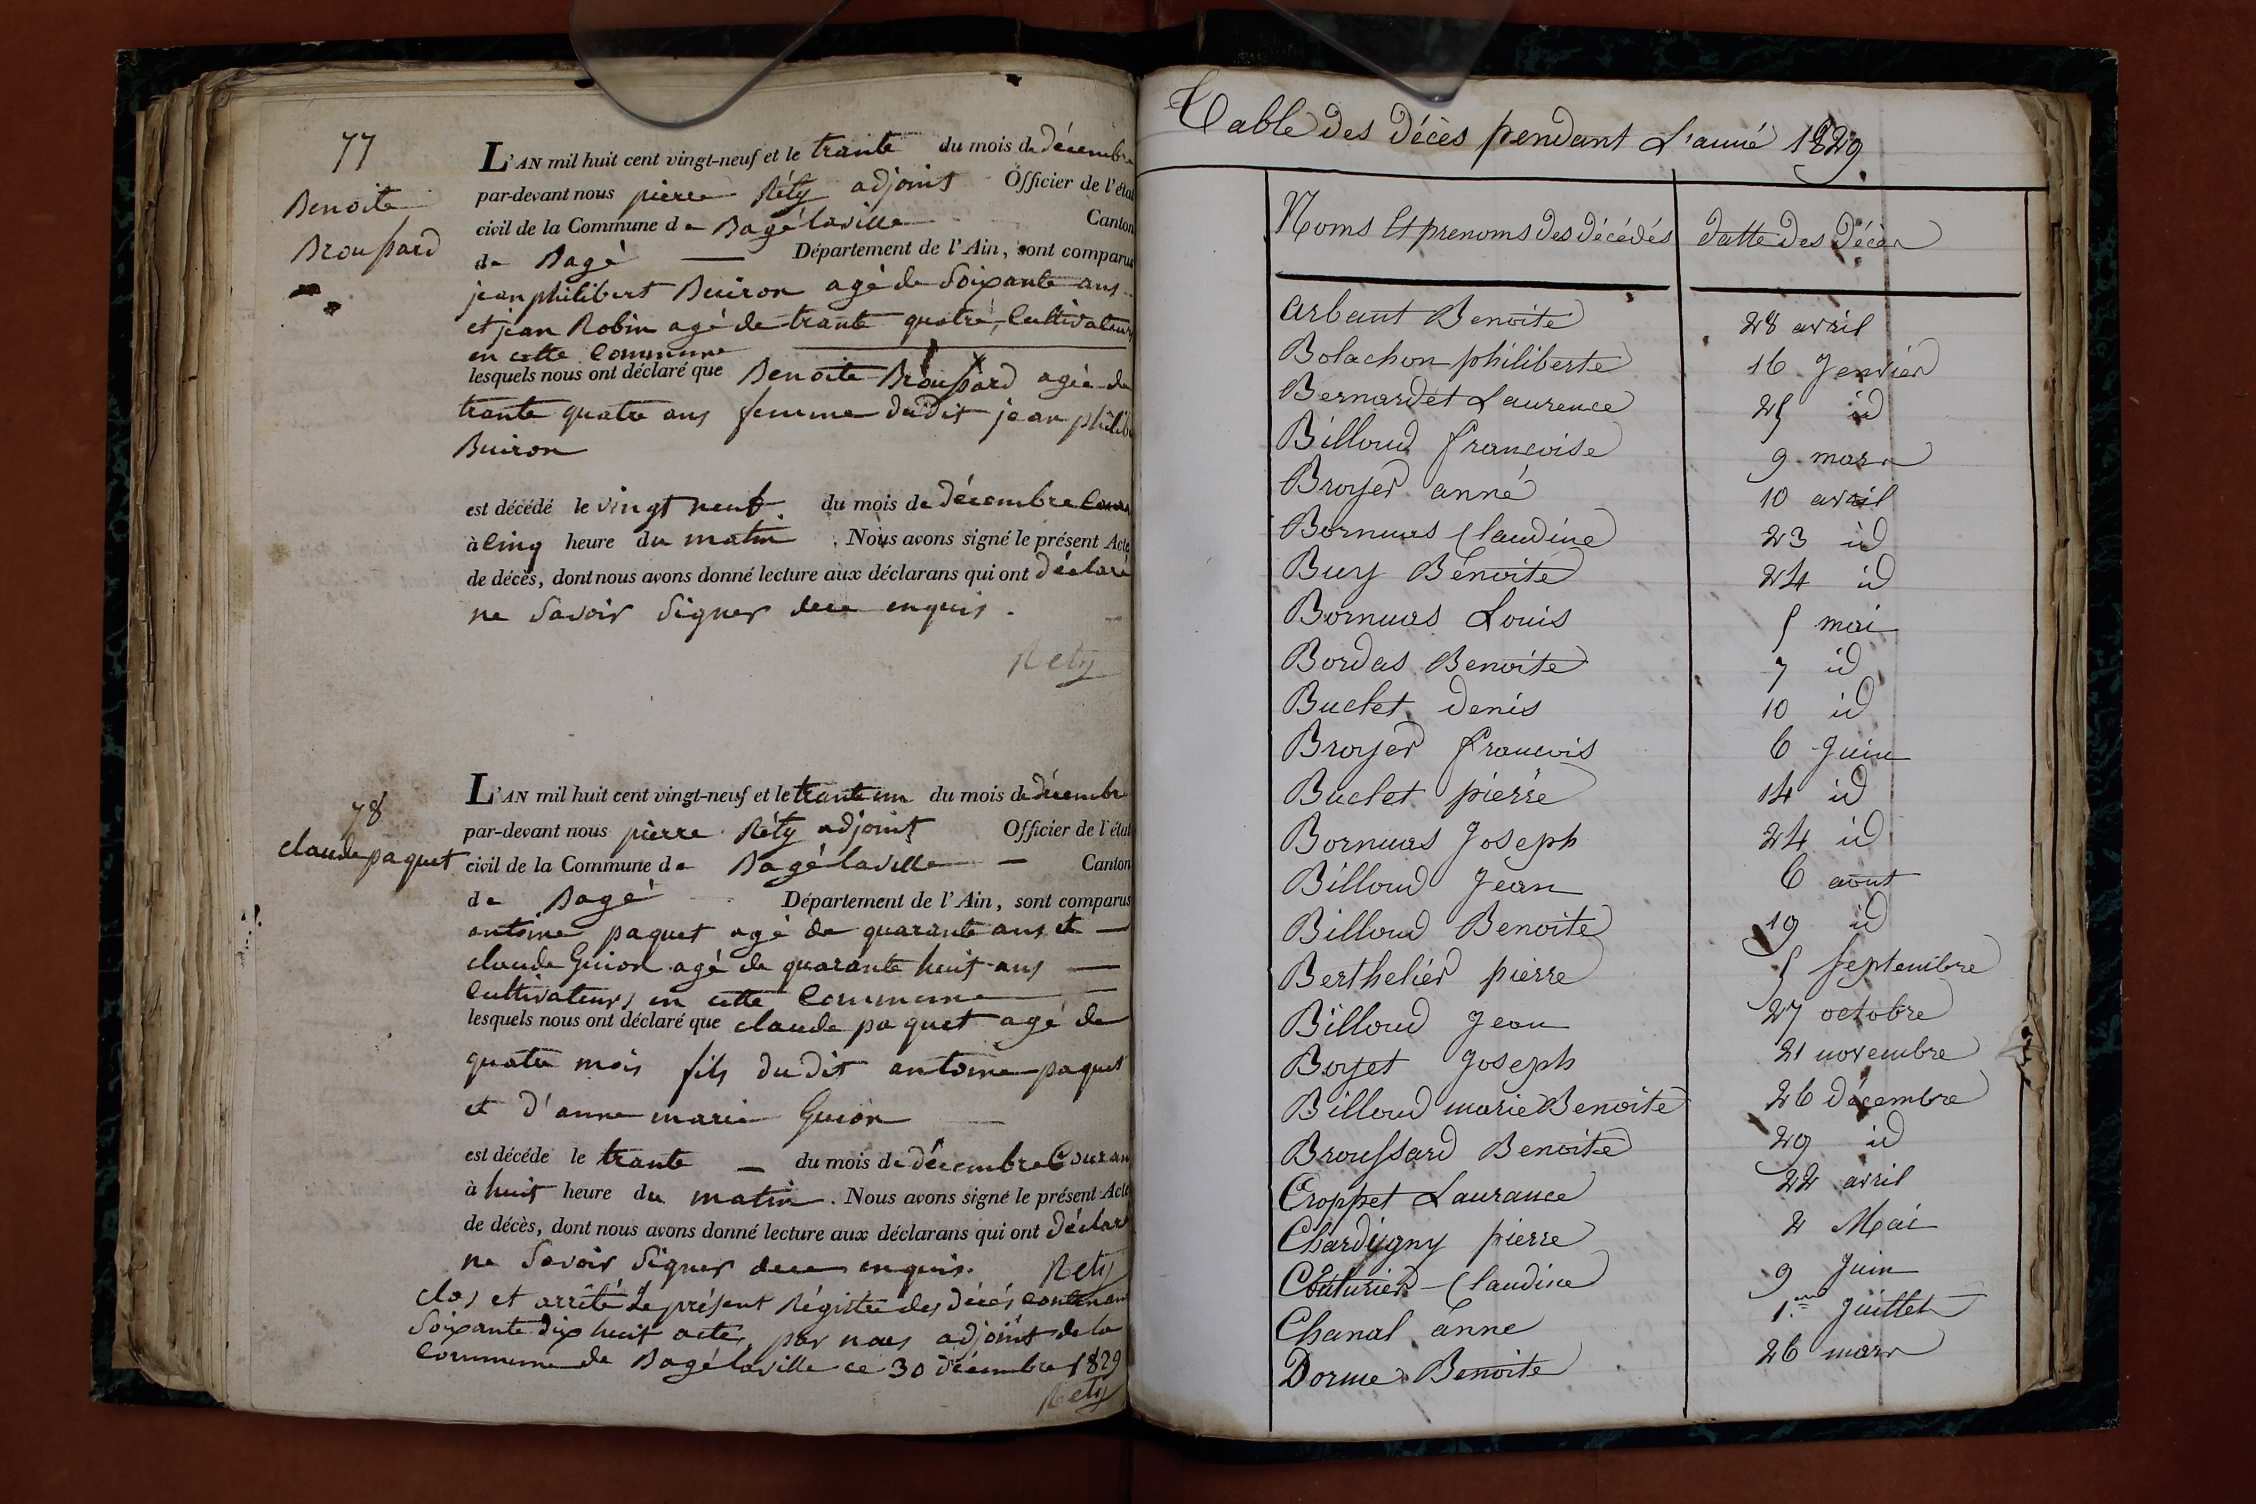 77
Benoite
Broussard
L'AN mil huit cent vingt-neuf et le trante du mois de décembre
par-devant nous pierre Réty adjoint Officier de l'état
civil de la Commune de Bagé laville Canton
de Bagé — Département de l'Ain, sont comparus
jean philibert Buiron agé de Soixante ans
et jean Robin agé de trante quatre, Cultivateurs
en cette Commune
lesquels nous ont déclaré que Benoite Broussard agée de
trante quatre ans femme dudit jean philib
Buiron
est décédé le vingt neuf du mois de décembre Couran
à Cinq heure du matin. Nous avons signé le présent Acte
de décès, dont nous avons donné lecture aux déclarans qui ont déclaré
ne Savoir Signer dece enquis.
Rety
78
claude paquet
L'AN mil huit cent vingt-neuf et le trante un du mois de décembr
par-devant nous pierre Réty adjoint Officier de l'état
civil de la Commune de Bagé laville — Canton
de Bagé Département de l'Ain, sont comparus
antoine paquet agé de quarante ans et —
claude Guion agé de quarante huit ans —
Cultivateurs en cette Commune —
lesquels nous ont déclaré que claude paquet agé de
quatre mois fils dudit antoine paquet
et d'anne marie Guion
est décédé le trante — du mois de décembre Couran
à huit heure du matin. Nous avons signé le présent Acte
de décès, dont nous avons donné lecture aux déclarans qui ont déclaré
ne Savoir Signer dece enquis. Rety
clos et arrêté Le présent Régistre des décés contenan
Soixante dix huit actes, par nous adjoint de la
Commune de Bagé laville ce 30 décembre 1829
Rety
Table des Décès pendant L'anné 1829.
Noms Et prenoms des décédés datte des Décès
Arbant Benoite 28 avril
Bolachon philiberte 16 Jenvier
Bernardet Laurence 25 id
Billoud francoise 9 mars
Broyer anné 10 avril
Bornuas Claudine 23 id
Buy Bénoite 24 id
Bornuas Louis 5 mai
Bordas Benoite 7 id
Buclet Denis 10 id
Broyer francois 6 Juin
Buclet pierre 14 id
Bornuas Joseph 24 id
Billoud Jean 6 aout
Billoud Benoite 19 id
Berthelier pierre 5 septembre
Billoud Jean 27 octobre
Boyet Joseph 21 novembre
Billoud marie Benoite 26 décembre
Broussard Benoite 29 id
Croppet Laurance 22 avril
Chardigny pierre 2 Mai
Couturier Claudine 9 Juin
Chanal anne 1.er Juillet
Dorme Benoite 26 mars